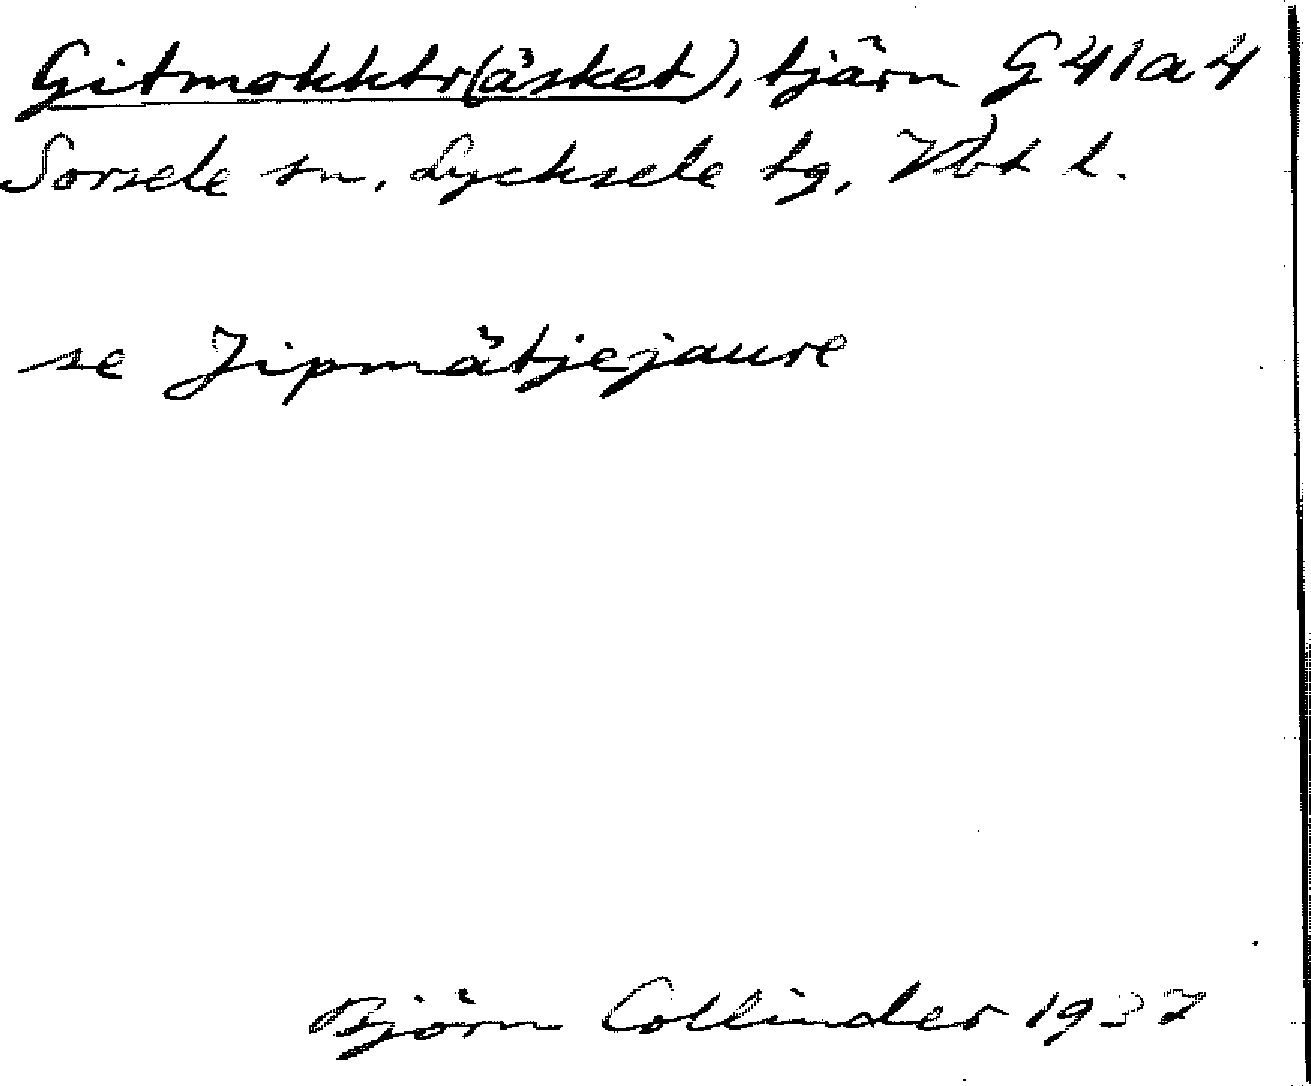 Gitmokktr(äsket), tjärn G 41 a 4
Sorsele sn, Lycksele tg, Vbt l.
se Jipmätjejaure
Björn Collinder 1937